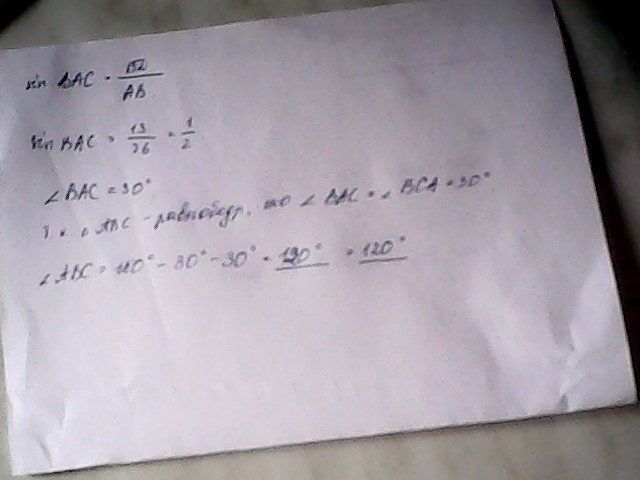 sin BAC = BD / AB
sin BAC = 13/26 = 1/2
∠BAC = 30°
т.к. △ABC - равнобедр., то ∠BAC = ∠BCA = 30°
∠ABC = 180° - 30° - 30° = 120° = 120°